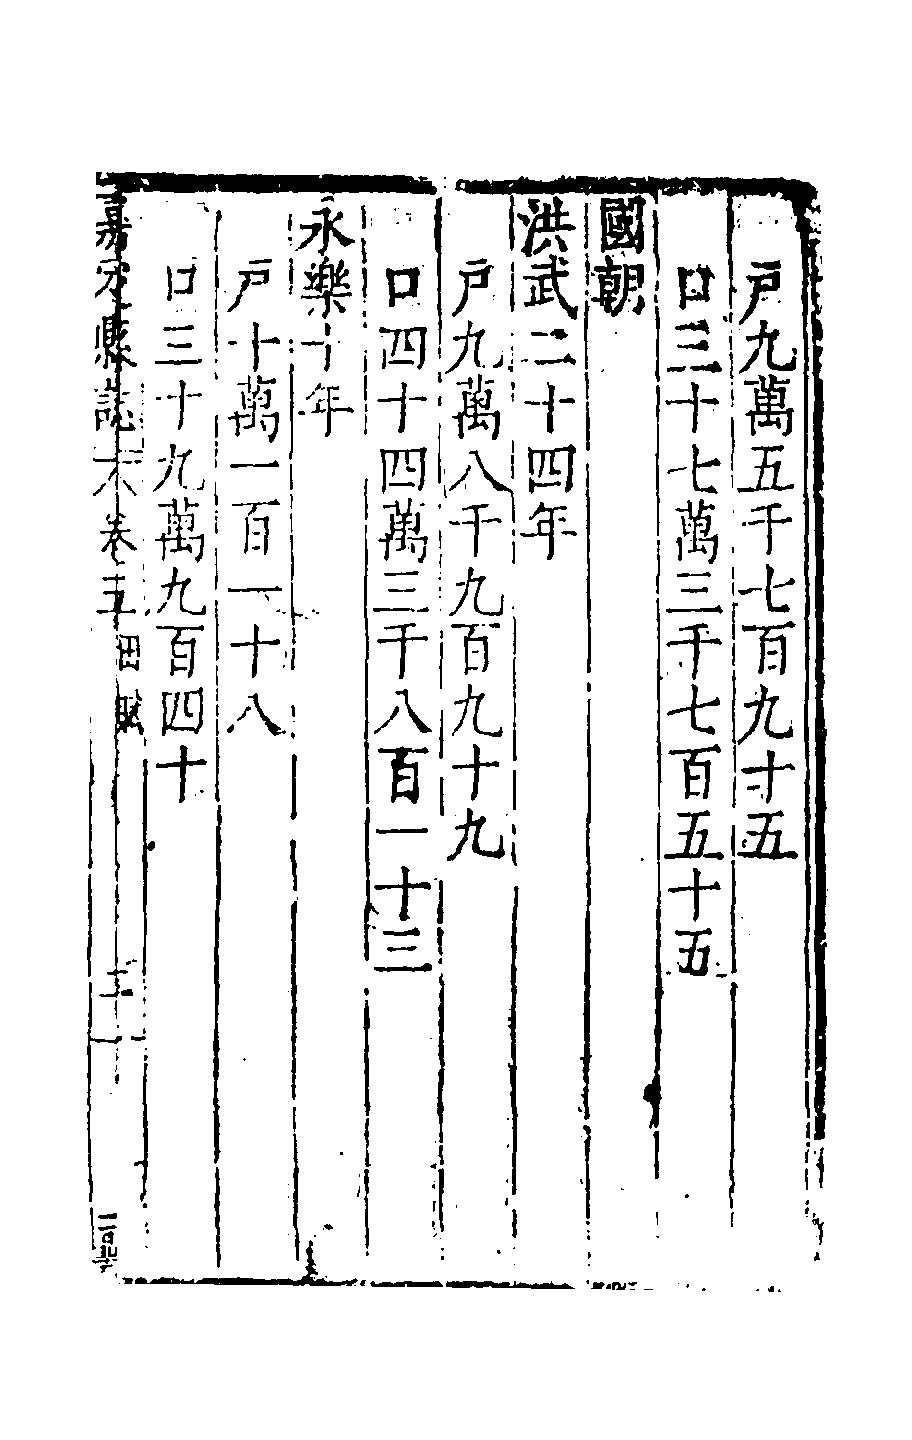 戸九萬五千七百九十五
口三十七萬三千七百五十五
國朝
洪武二十四年
戸九萬八千九百九十九
口四十四萬三千八百一十三
永樂十年
戸十萬一百一十八
口三十九萬九百四十
嘉定縣誌 卷五 田賦